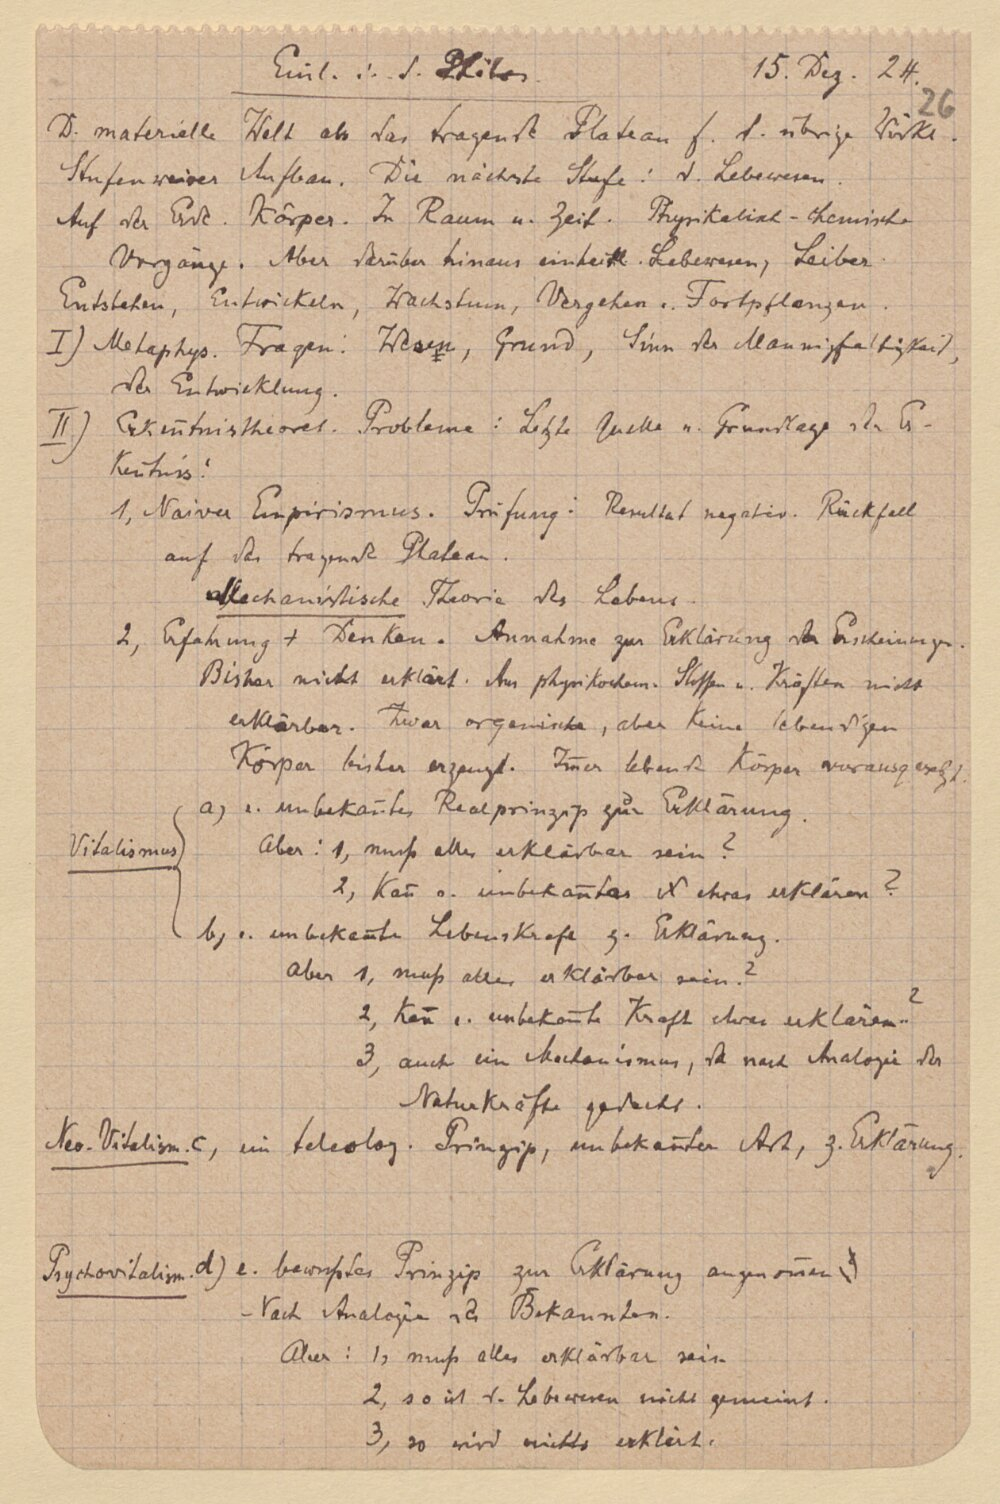 Einl. i. d. Philos. 15. Dez. 24.
26
D. materielle Welt als das tragende Plateau f. d. übrige Wirkl.
Stufenweiser Aufbau. Die nächste Stufe: d. Lebewesen.
Auf der Erde. Körper. In Raum u. Zeit. Physikalisch-chemische
Vorgänge. Aber darüber hinaus Lebewesen, Leiber.
Entstehen, Entwickeln, Wachstum, Vergehen u. Fortpflanzen.
I) Metaphys. Fragen: Wesen, Grund, Sinn der Mannigfaltigkeit,
der Entwicklung.
II) Erken̄tnistheoret. Probleme: Letzte Quelle u. Grundlage der Er-
ken̄tnis:
1, Naiver Empirismus. Prüfung: Resultat negativ. Rückfall
auf das tragende Plateau.
Mechanistische Theorie des Lebens.
2, Erfahrung + Denken. Annahme zur Erklärung der Erscheinungen.
Bisher nicht erklärt. Aus physikochem. Stoffen u. Kräften nicht
erklärbar. Zwar organische, aber keine lebendigen
Körper bisher erzeugt. Im̄er lebende Körper vorausgesetzt.
a) e. unbekan̄tes Realprinzip zur Erklärung.
Vitalismus
Aber: 1, muß alles erklärbar sein?
2, Kan̄ e. unbekan̄tes X etwas erklären?
b, e. unbekan̄te Lebenskraft z. Erklärung.
Aber 1, muß alles erklärbar sein?
2, Kan̄ e. unbekan̄te Kraft etwas erklären?
3, auch ein Mechanismus, da nach Analogie der
Naturkräfte gedacht.
Neo-Vitalism. c, ein teleolog. Prinzip, unbekan̄ter Art, z. Erklärung.
Psychovitalism. d) e. bewußtes Prinzip zur Erklärung angenom̄en
- Nach Analogie des Bekannten.
Aber: 1, muß alles erklärbar sein
2, so ist d. Lebewesen nicht gemeint.
3, so wird nichts erklärt.